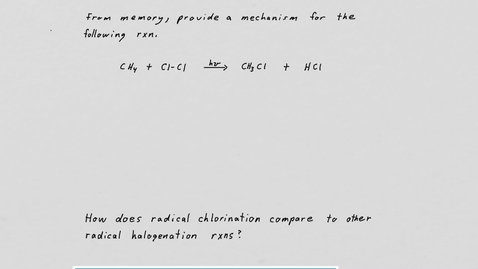 From memory, provide a mechanism for the
following rxn.
CH₄ + Cl-Cl hν⟶ CH₃Cl + HCl
How does radical chlorination compare to other
radical halogenation rxns?